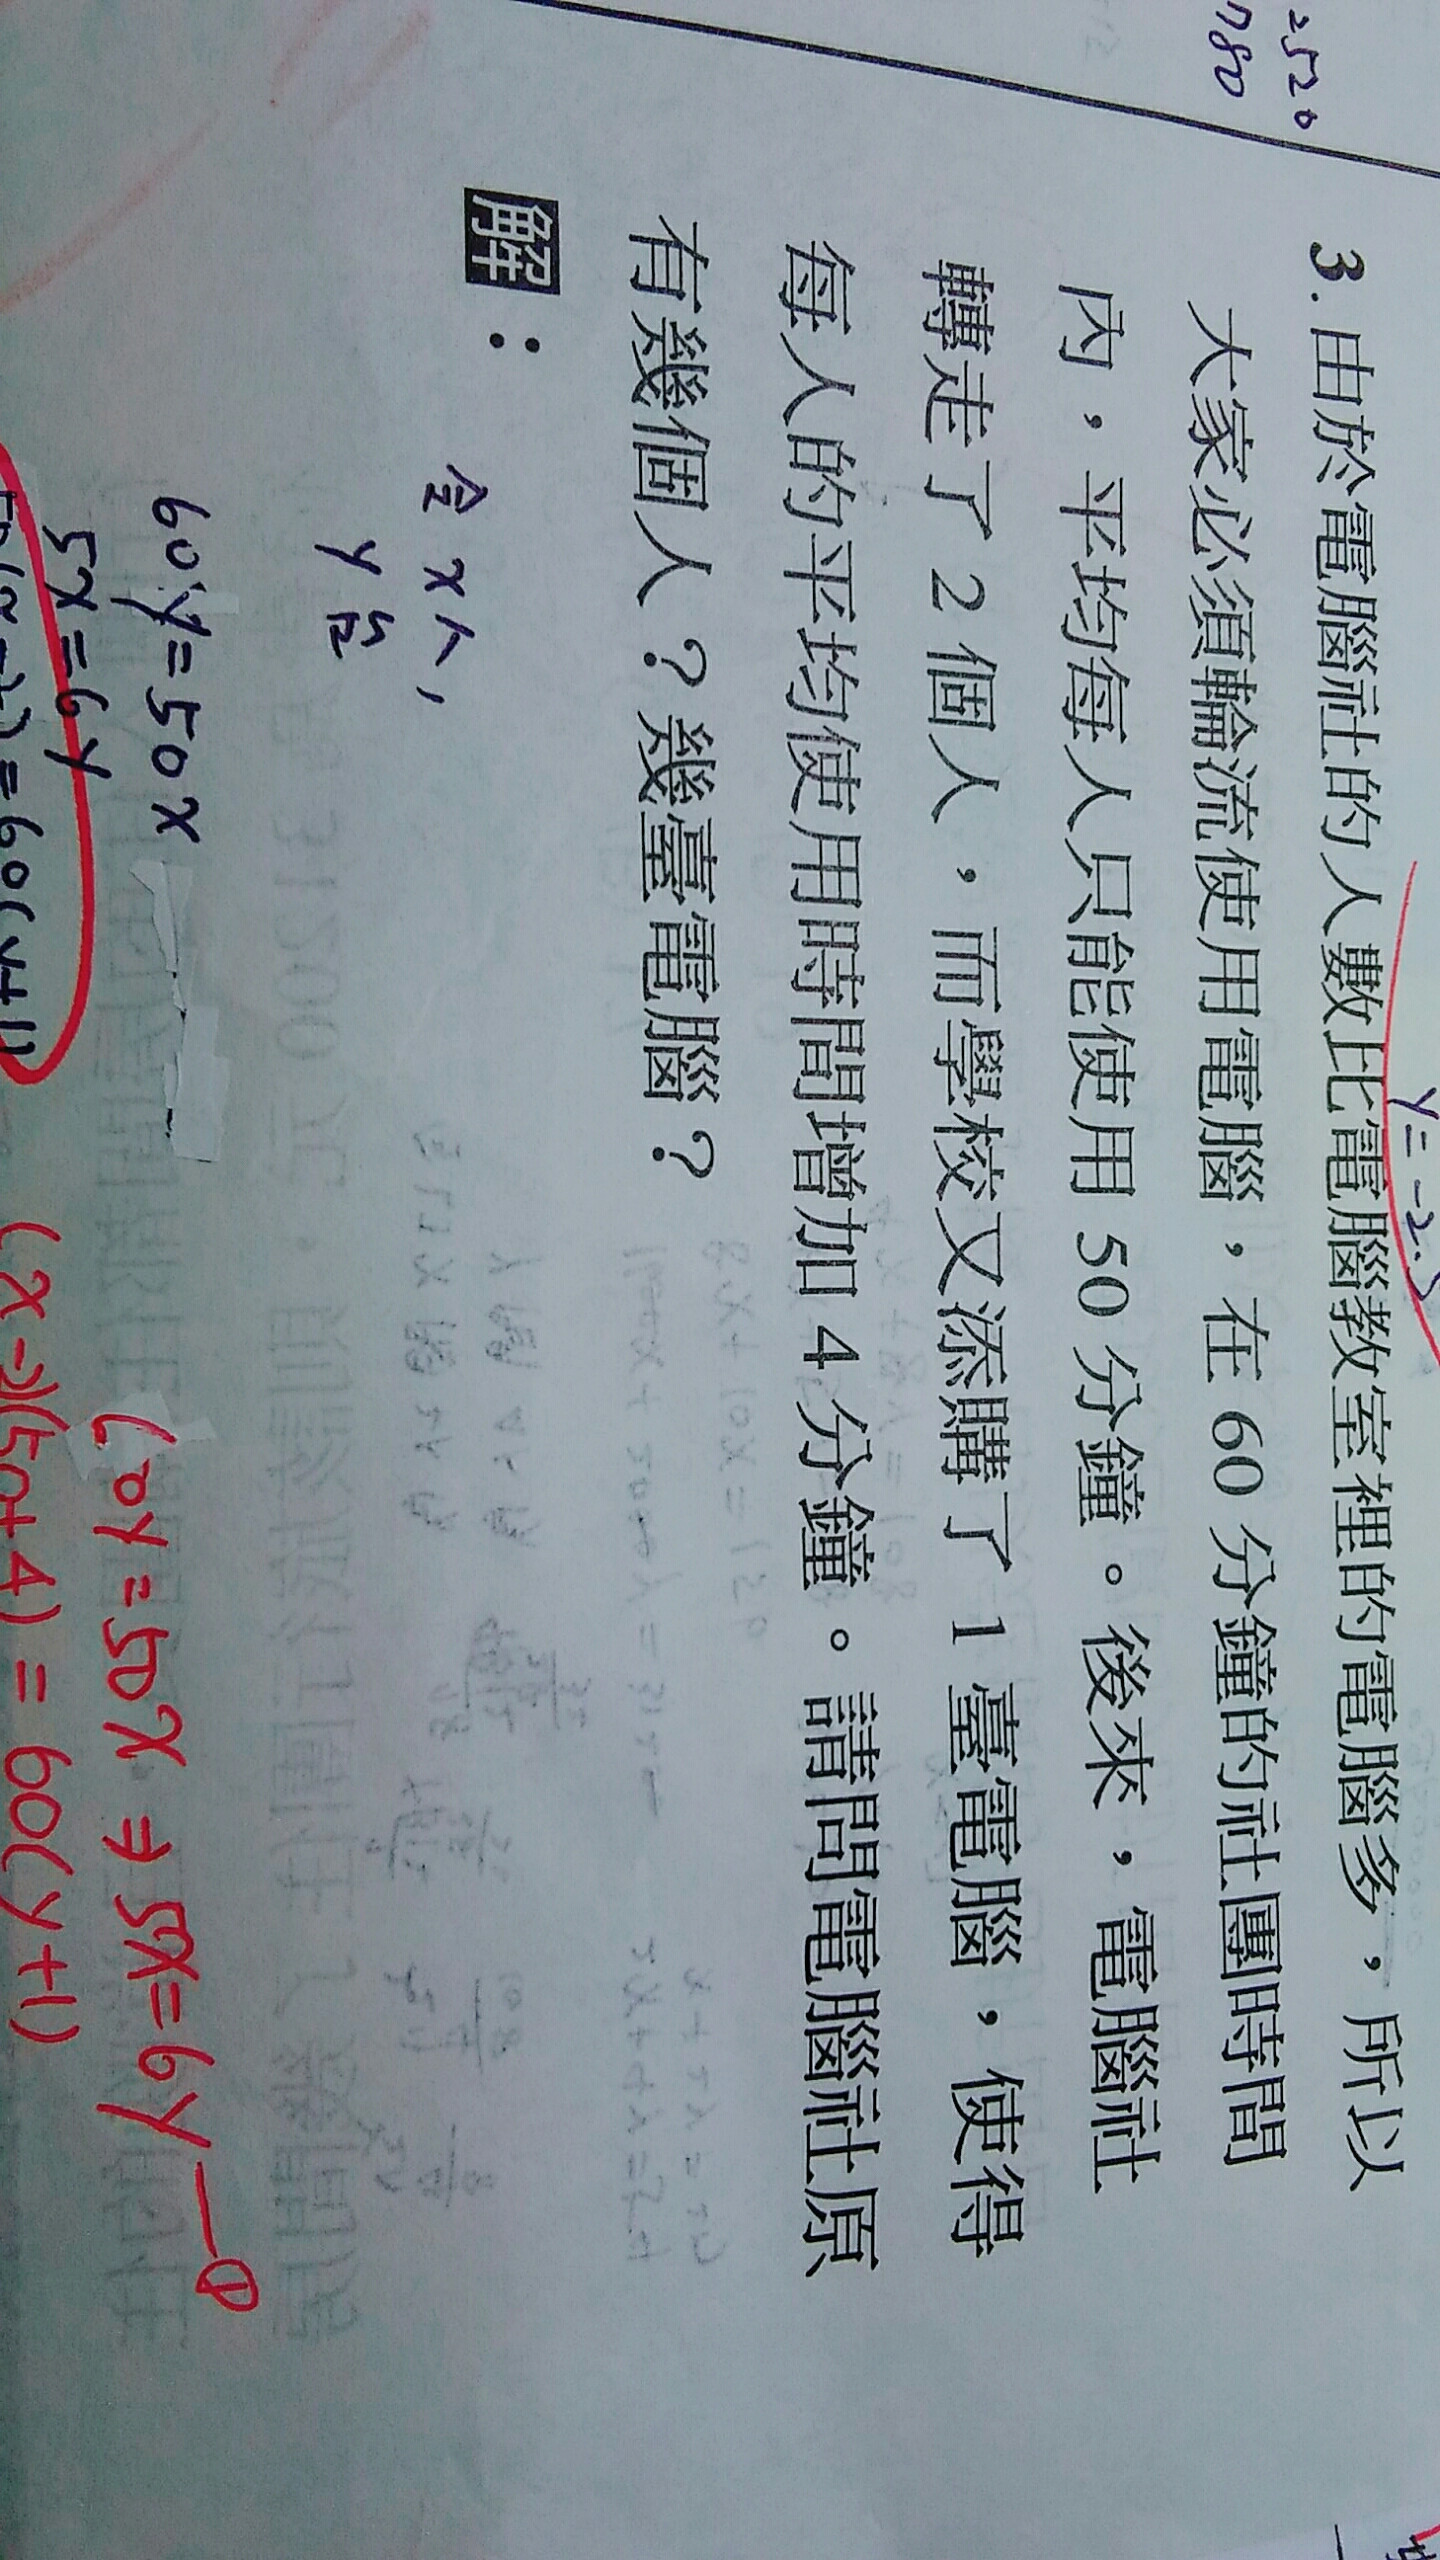 2520
y=-2.5
3. 由於電腦社的人數比電腦教室裡的電腦多，所以
大家必須輪流使用電腦，在 60 分鐘的社團時間
內，平均每人只能使用 50 分鐘。後來，電腦社
轉走了 2 個人，而學校又添購了 1 臺電腦，使得
每人的平均使用時間增加 4 分鐘。請問電腦社原
有幾個人？幾臺電腦？
解：
令 x 人，
y 台
60y=50x
5x=6y
=60(y+1)
60y=50x ⇒ 5x=6y —①
(x-2)(50+4)=60(y+1)